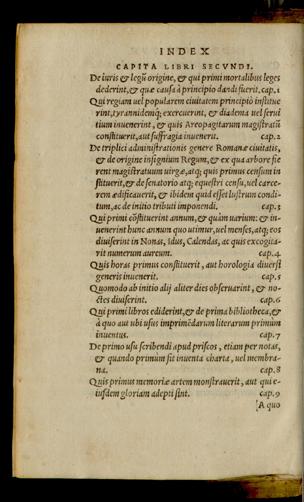 INDEX
CAPITA LIBRI SECVNDI.
De iuris & legũ origine, & qui primi mortalibus leges
dederint, & quæ causa à principio dandi fuerit. cap.1
Qui regiam uel popularem ciuitatem principiò institue
rint, tyrannidemq; exercuerint, & diadema uel serui
tium inuenerint, & quis Areopagitarum magistratũ
constituerit, aut suffragia inuenerit. cap.2
De triplici administrationis genere Romanæ ciuitatis,
& de origine insignium Regum, & ex qua arbore fie
rent magistratuum uirgæ, atq; quis primus censum in
stituerit, & de senatorio atq; equestri censu, uel carce-
rem ædificauerit, & ibidem quid esset lustrum condi-
tum, ac de initio tributi imponendi. cap.3
Qui primi cõstituerint annum, & quàm uarium: & in-
uenerint hunc annum quo utimur, uel menses, atq; eos
diuiserint in Nonas, Idus, Calendas, ac quis excogita-
rit numerum aureum. cap.4
Quis horas primus constituerit, aut horologia diuersi
generis inuenerit. cap.5
Quomodo ab initio alij aliter dies obseruarint, & no-
ctes diuiserint. cap.6
Qui primi libros ediderint, & de prima bibliotheca, &
à quo aut ubi usus imprimẽdarum literarum primùm
inuentus. cap.7
De primo usu scribendi apud priscos, etiam per notas,
& quando primùm sit inuenta charta, uel membra-
na. cap.8
Quis primus memoriæ artem monstrauerit, aut qui e-
iusdem gloriam adepti sint. cap.9
A quo